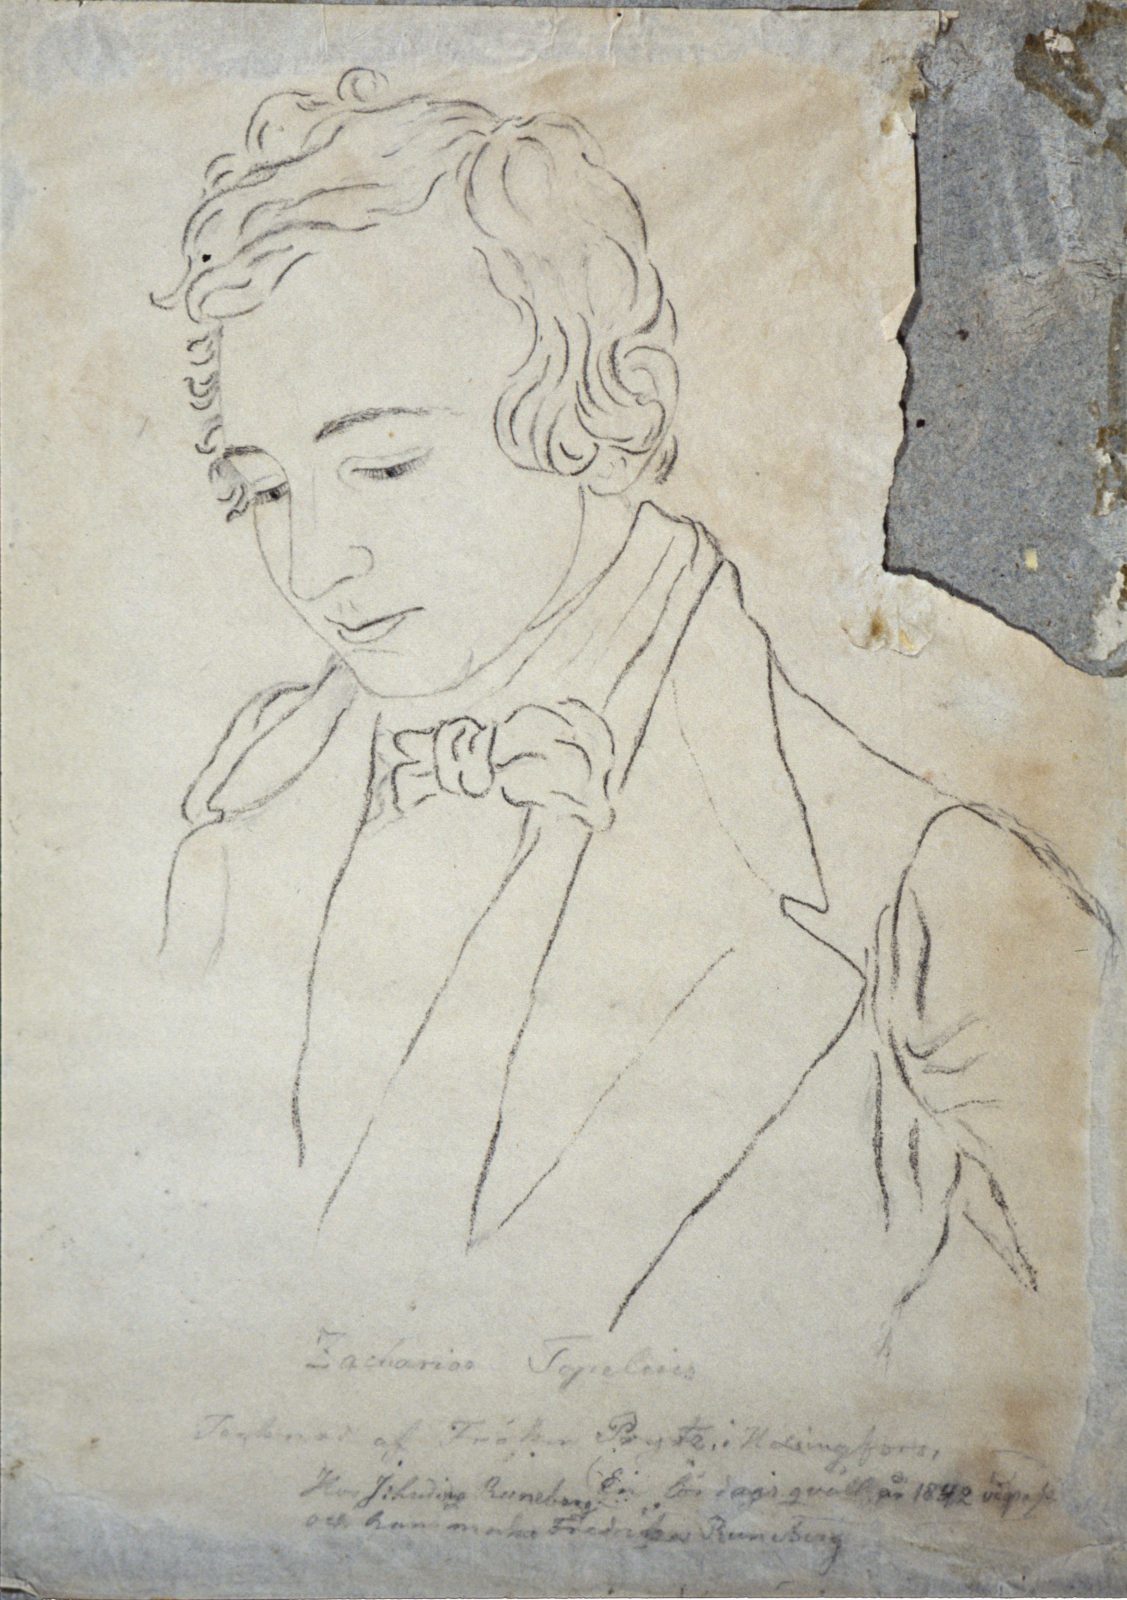 Zacharias Topelius
Tecknad af Fröken Prytz, i Helsingfors,
Hos J: Ludvig Runeberg (En lördags qväll år 1842
och hans maka Fredrika Runeberg